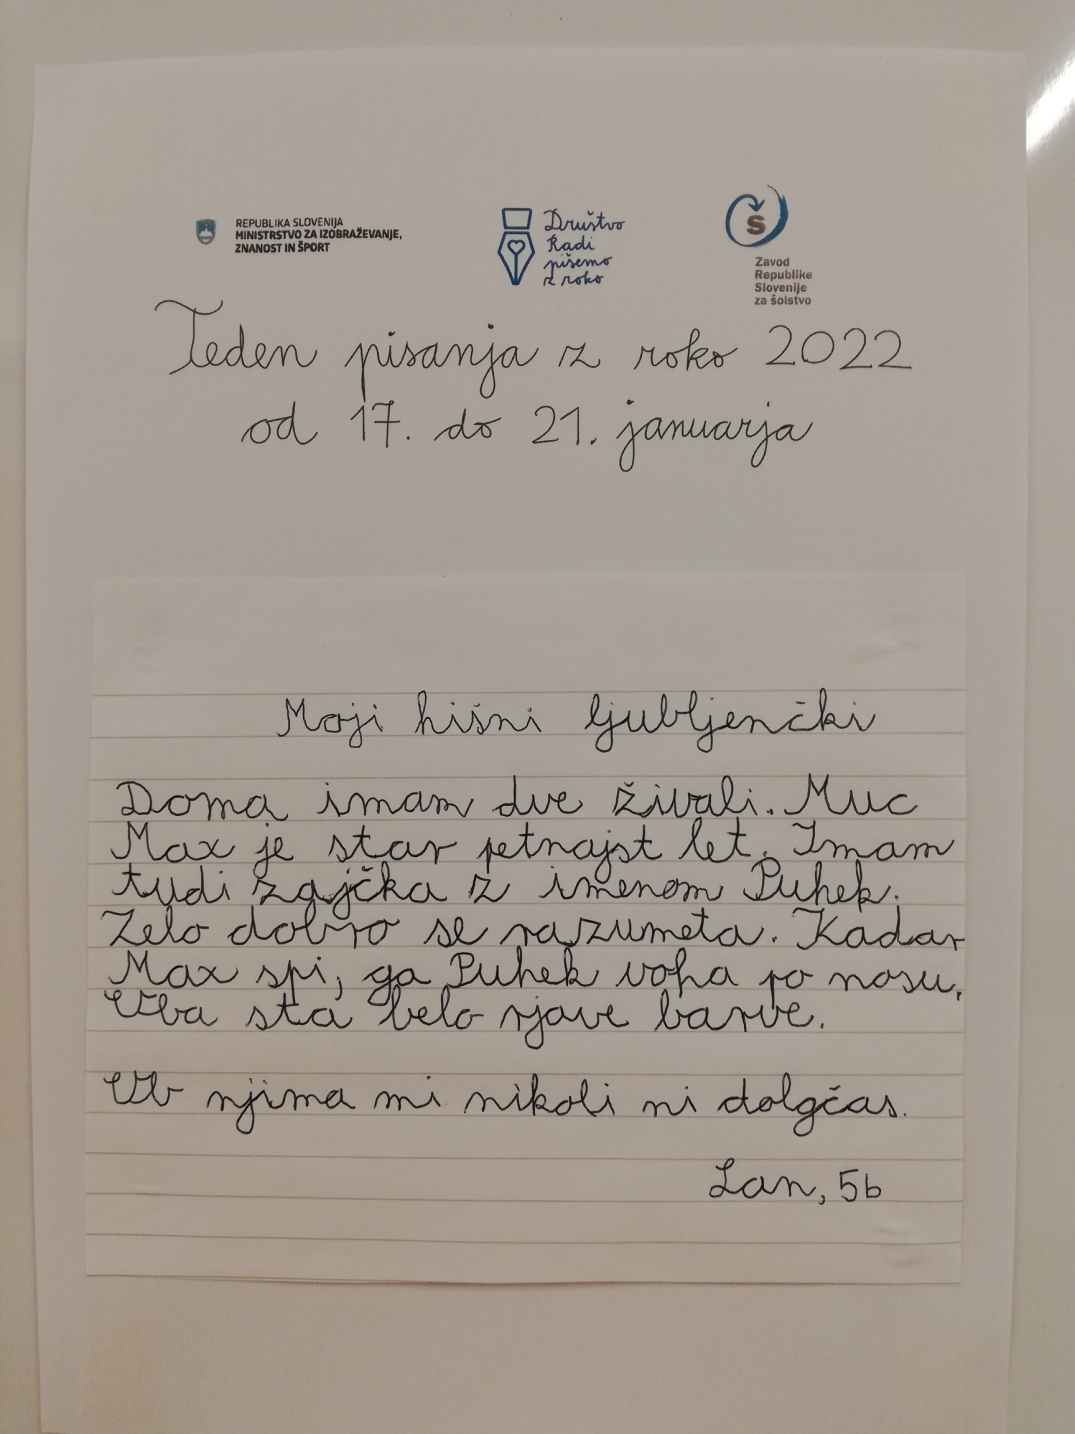 REPUBLIKA SLOVENIJA
MINISTRSTVO ZA IZOBRAŽEVANJE,
ZNANOST IN ŠPORT
Društvo
Radi
pišemo
z roko
Š
Zavod
Republike
Slovenije
za šolstvo
Teden pisanja z roko 2022
od 17. do 21. januarja
Moji hišni ljubljenčki
Doma imam dve živali. Muc
Max je star petnajst let. Imam
tudi zajčka z imenom Puhek.
Zelo dobro se razumeta. Kadar
Max spi, ga Puhek voha po nosu.
Oba sta belo rjave barve.
Ob njima mi nikoli ni dolgčas.
Lan, 5b